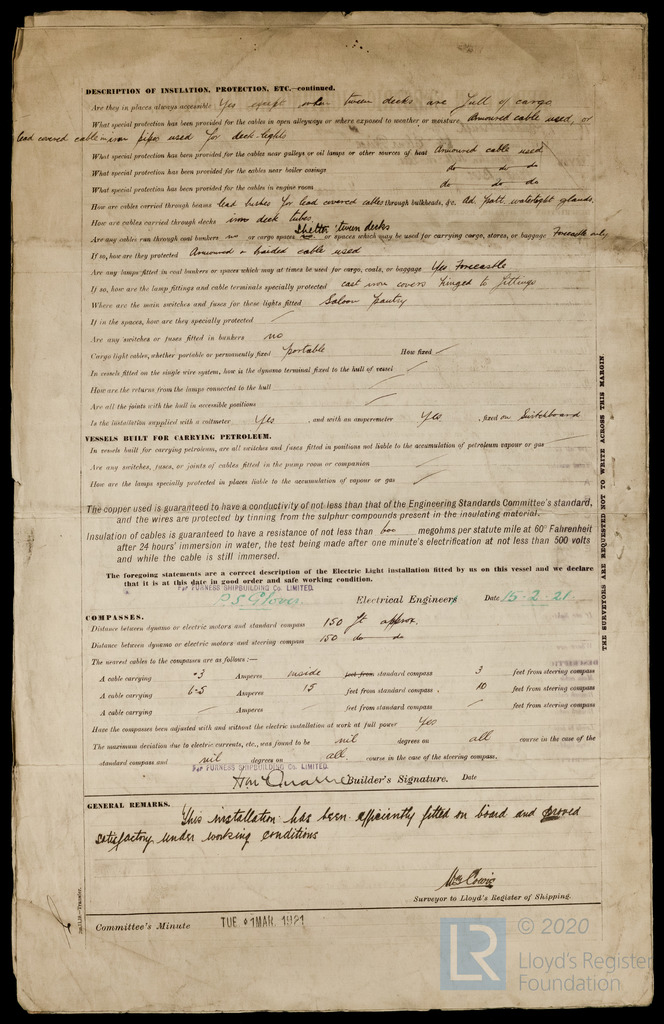 DESCRIPTION OF INSULATION, PROTECTION, ETC.—continued.
Are they in places always accessible Yes except when tween decks are full of cargo
What special protection has been provided for the cables in open alleyways or where exposed to weather or moisture Armoured cable used, or
lead covered cable in iron pipes used for deck lights
What special protection has been provided for the cables near galleys or oil lamps or other sources of heat Armoured cable used
What special protection has been provided for the cables near boiler casings do do do
What special protection has been provided for the cables in engine room do do do
How are cables carried through beams lead bushes for lead covered cables through bulkheads, &c. Ad. Patt. watertight glands.
How are cables carried through decks iron deck tubes.
Shelter tween decks
Are any cables run through coal bunkers no or cargo spaces or spaces which may be used for carrying cargo, stores, or baggage Forecastle only
If so, how are they protected Armoured or braided cable used
Are any lamps fitted in coal bunkers or spaces which may at times be used for cargo, coals, or baggage Yes Forecastle
If so, how are the lamp fittings and cable terminals specially protected cast iron covers hinged to fittings
Where are the main switches and fuses for these lights fitted Saloon pantry
If in the spaces, how are they specially protected
Are any switches or fuses fitted in bunkers no
Cargo light cables, whether portable or permanently fixed portable How fixed
In vessels fitted on the single wire system, how is the dynamo terminal fixed to the hull of vessel
How are the returns from the lamps connected to the hull
Are all the joints with the hull in accessible positions
Is the installation supplied with a voltmeter Yes , and with an amperemeter Yes , fixed on Switchboard
VESSELS BUILT FOR CARRYING PETROLEUM.
In vessels built for carrying petroleum, are all switches and fuses fitted in positions not liable to the accumulation of petroleum vapour or gas
Are any switches, fuses, or joints of cables fitted in the pump room or companion
How are the lamps specially protected in places liable to the accumulation of vapour or gas
The copper used is guaranteed to have a conductivity of not less than that of the Engineering Standards Committee's standard,
and the wires are protected by tinning from the sulphur compounds present in the insulating material.
Insulation of cables is guaranteed to have a resistance of not less than 600 megohms per statute mile at 60° Fahrenheit
after 24 hours' immersion in water, the test being made after one minute's electrification at not less than 500 volts
and while the cable is still immersed.
The foregoing statements are a correct description of the Electric Light installation fitted by us on this vessel and we declare
that it is at this date in good order and safe working condition.
For FURNESS SHIPBUILDING Co. LIMITED.
P.S. Glover Electrical Engineers Date 15-2-21
COMPASSES.
Distance between dynamo or electric motors and standard compass 150 ft approx.
Distance between dynamo or electric motors and steering compass 150 do do
The nearest cables to the compasses are as follows:—
A cable carrying ·3 Amperes inside feet from standard compass 3 feet from steering compass
A cable carrying 6-5 Amperes 15 feet from standard compass 10 feet from steering compass
A cable carrying Amperes feet from standard compass feet from steering compass
Have the compasses been adjusted with and without the electric installation at work at full power Yes
The maximum deviation due to electric currents, etc., was found to be nil degrees on all course in the case of the
standard compass and nil degrees on all. course in the case of the steering compass.
For FURNESS SHIPBUILDING Co. LIMITED.
Builder's Signature. Date
GENERAL REMARKS.
This installation has been efficiently fitted on board and proved
satisfactory under working conditions
Surveyor to Lloyd's Register of Shipping.
Committee's Minute TUE 1 MAR. 1921
THE SURVEYORS ARE REQUESTED NOT TO WRITE ACROSS THIS MARGIN
LR
© 2020
Lloyd's Register
Foundation